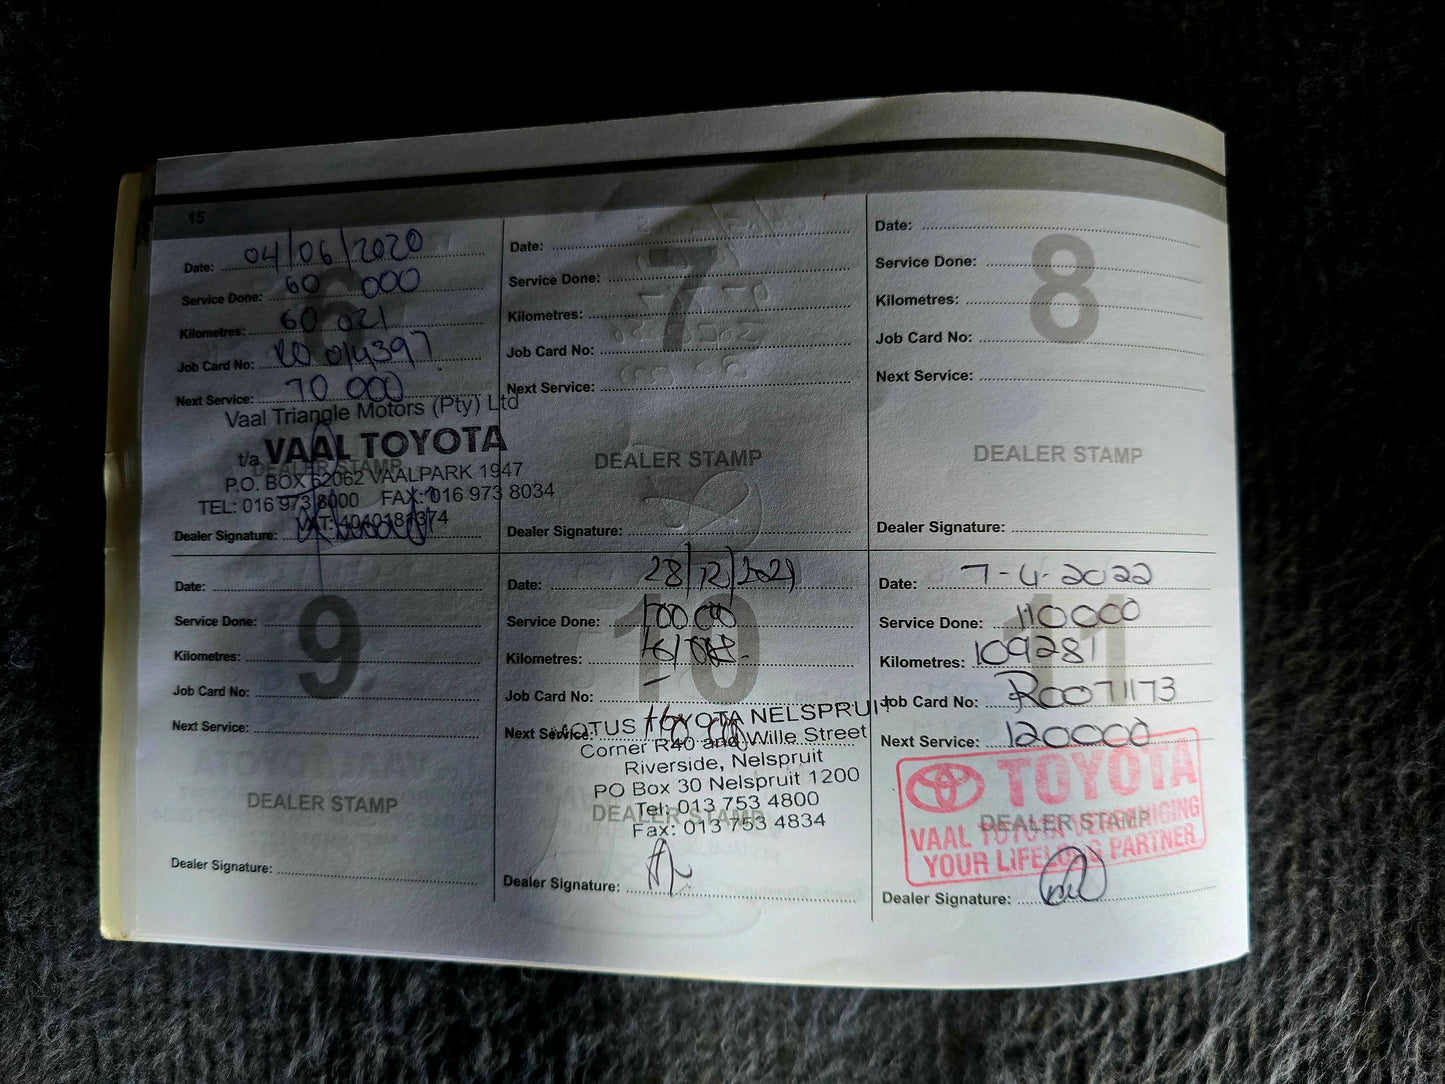 15
6
Date: 04/06/2020
Service Done: 60 000
Kilometres: 60 021
Job Card No: RO 014397
Next Service: 70 000
Vaal Triangle Motors (Pty) Ltd
t/a VAAL TOYOTA
DEALER STAMP
P.O. BOX 62062 VAALPARK 1947
TEL: 016 973 8000 FAX: 016 973 8034
VAT: 4040181374
Dealer Signature:
7
Date:
Service Done:
Kilometres:
Job Card No:
Next Service:
DEALER STAMP
Dealer Signature:
8
Date:
Service Done:
Kilometres:
Job Card No:
Next Service:
DEALER STAMP
Dealer Signature:
9
Date:
Service Done:
Kilometres:
Job Card No:
Next Service:
DEALER STAMP
Dealer Signature:
10
Date: 28/12/2021
Service Done: 100 000
Kilometres:
Job Card No:
Next Service:
MOTUS TOYOTA NELSPRUIT
Corner R40 and Wille Street
Riverside, Nelspruit
PO Box 30 Nelspruit 1200
Tel: 013 753 4800
DEALER STAMP
Fax: 013 753 4834
Dealer Signature:
11
Date: 7-4-2022
Service Done: 110000
Kilometres: 109281
Job Card No: R0071173
Next Service: 120000
TOYOTA
DEALER STAMP
VAAL TOYOTA VEREENIGING
YOUR LIFELONG PARTNER
Dealer Signature: